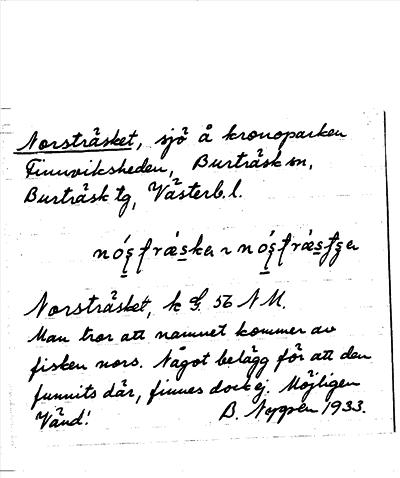 Norsträsket, sjö å kronoparken
Finnviksheden, Burträsk sn,
Burträsk tg, Västerb. l.
Norsträsket, k 56 N M.
Man tror att namnet kommer av
fisken nors. Något belägg för att den
funnits där, finnes dock ej. Möjligen
Vänd! B. 1933.